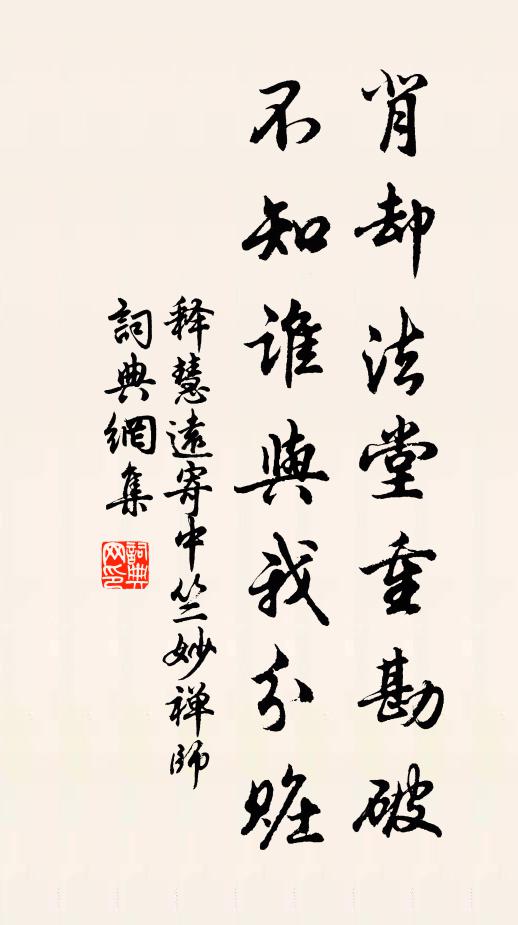 背却法堂重勘破
不知谁與我分賍
释慧遠寄中竺妙禅師
詞典網集
詞典网印